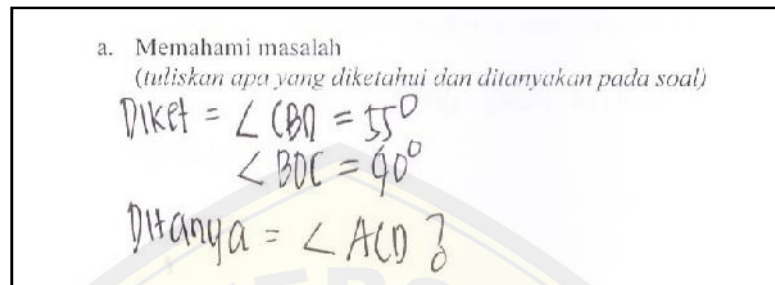 a. Memahami masalah
(tuliskan apa yang diketahui dan ditanyakan pada soal)
Diket = ∠ CBD = 55°
∠ BDC = 90°
Ditanya = ∠ ACD ?